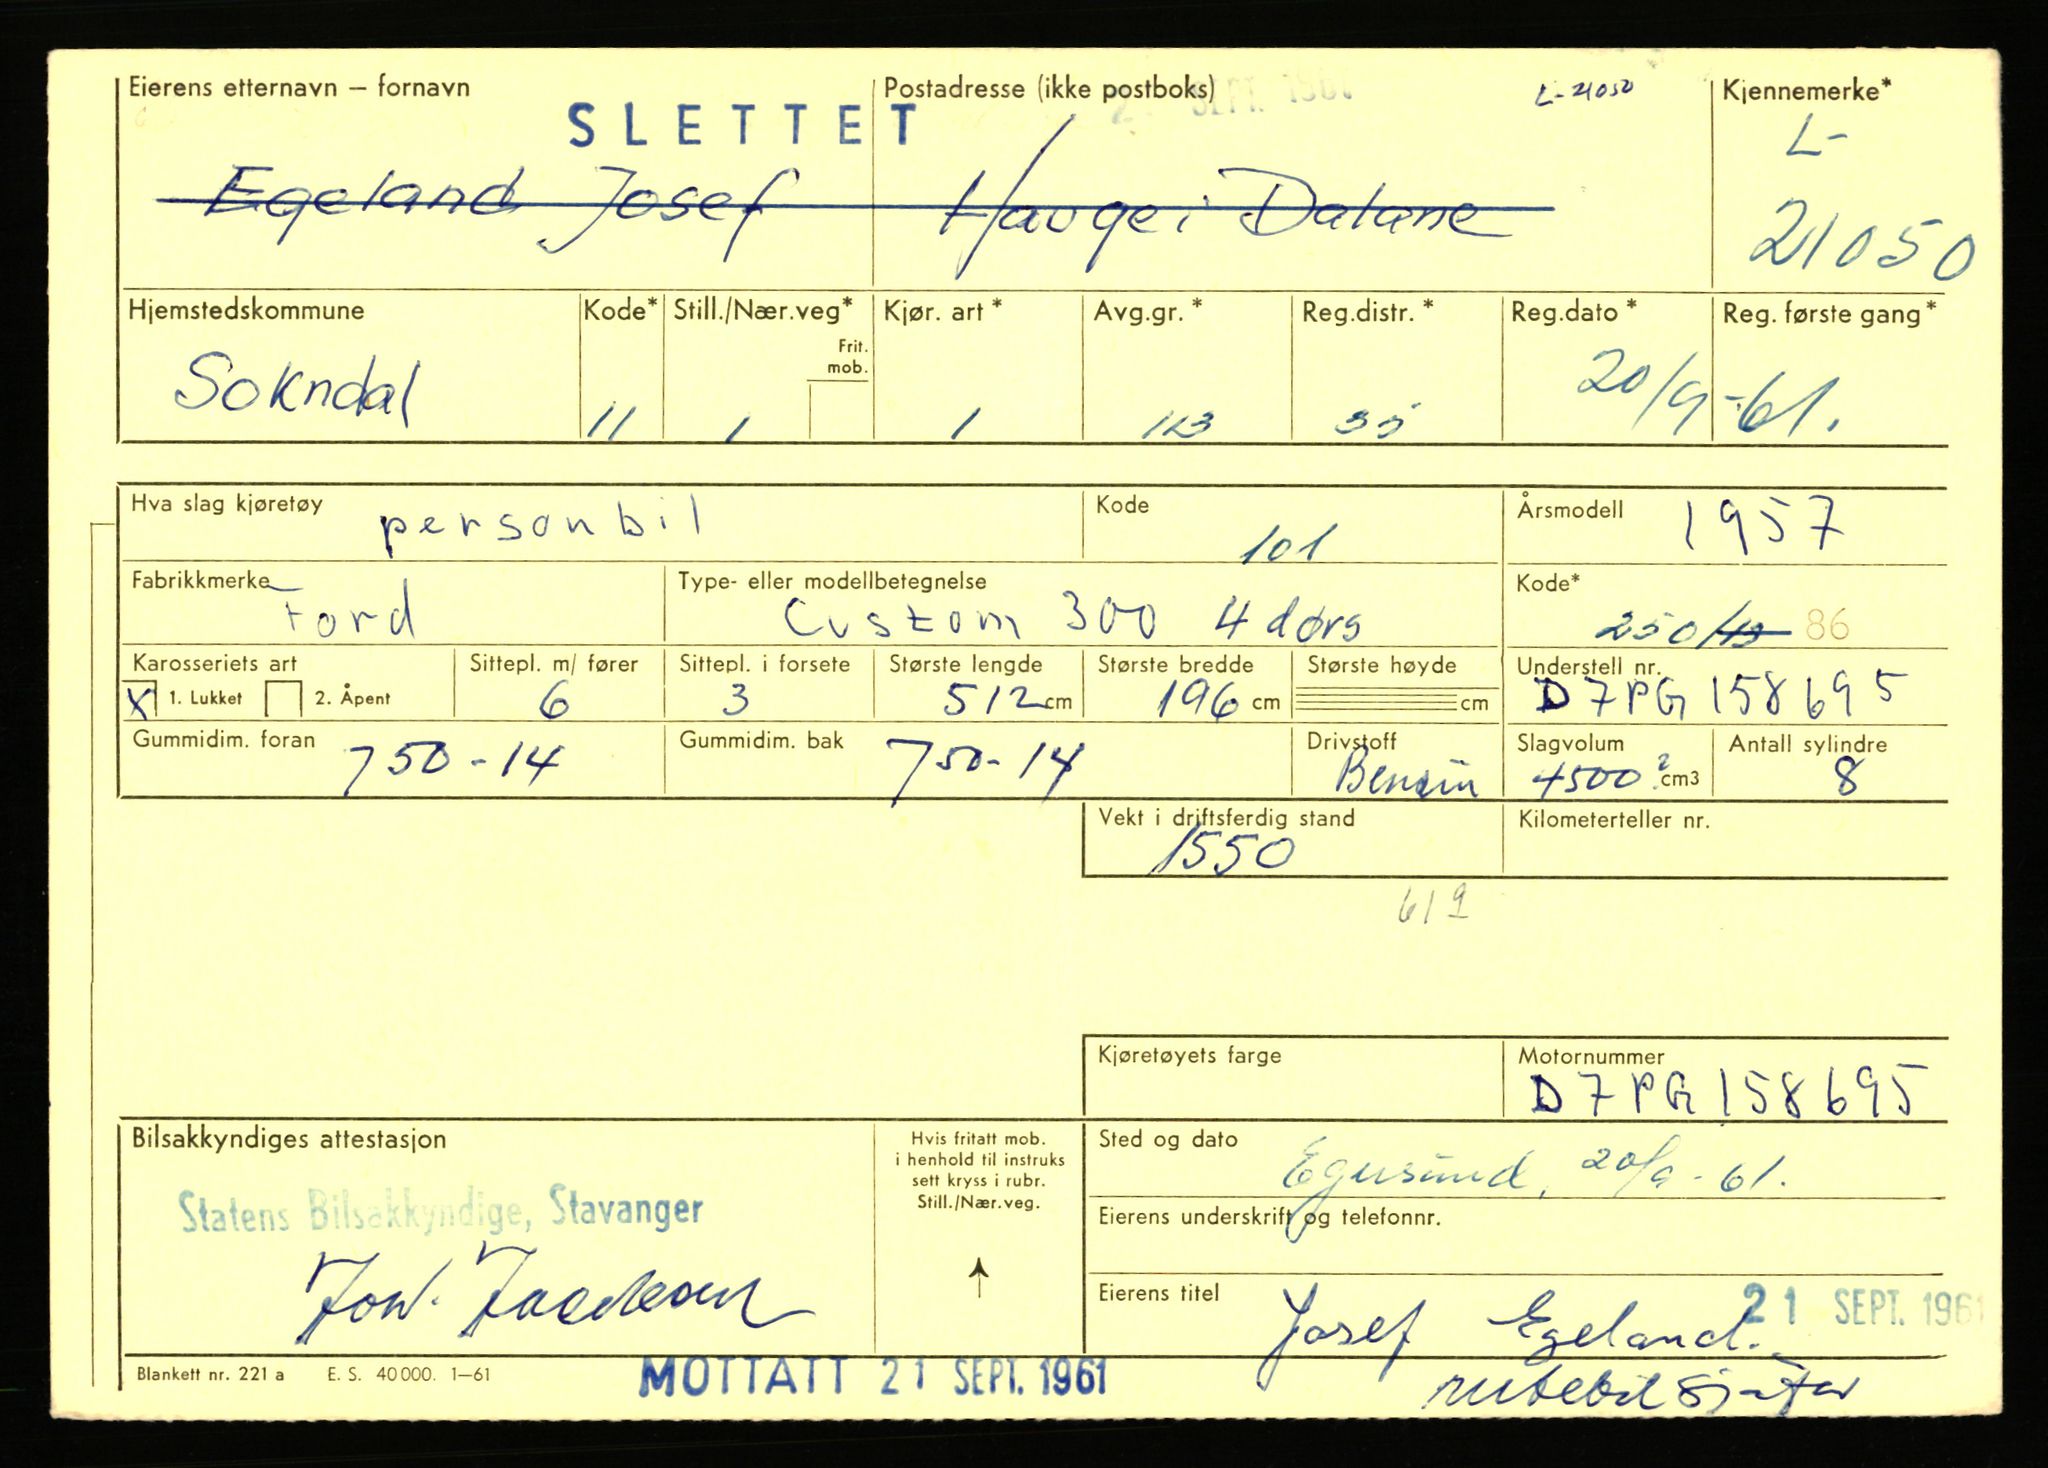 Eierens etternavn – fornavn
SLETTET
Postadresse (ikke postboks)
SEPT. 196
L-21050
Kjennemerke*
L-
21050
Egeland Josef
Hauge i Dalane
Hjemstedskommune
Sokndal
Kode*
11
Still./Nær.veg*
1
Frit.
mob.
Kjør. art *
1
Avg.gr. *
113
Reg.distr. *
35
Reg.dato *
Reg. første gang*
20/9-61.
Hva slag kjøretøy
personbil
Kode
101
Årsmodell
1957
Fabrikkmerke
Ford
Type- eller modellbetegnelse
Custom 300 4 dørs
Kode*
250/13 86
Karosseriets art
X 1. Lukket
2. Åpent
Sittepl. m/ fører
6
Sittepl. i forsete
3
Største lengde
512 cm
Største bredde
196 cm
Største høyde
cm
Understell nr.
D7PG158695
Gummidim. foran
750-14
Gummidim. bak
750-14
Drivstoff
Bensin
Slagvolum
4500 ? cm3
Antall sylindre
8
Vekt i driftsferdig stand
1550
Kilometerteller nr.
619
Kjøretøyets farge
Motornummer
D7PG158695
Bilsakkyndiges attestasjon
Statens Bilsakkyndige, Stavanger
Hvis fritatt mob.
i henhold til instruks
sett kryss i rubr.
Still./Nær.veg.
Sted og dato
Egersund, 20/9-61.
Eierens underskrift og telefonnr.
Eierens titel
Josef Egeland.
21 SEPT. 1961
rutebilsjåfør
Blankett nr. 221 a E. S. 40 000. 1–61
MOTTATT 21 SEPT. 1961